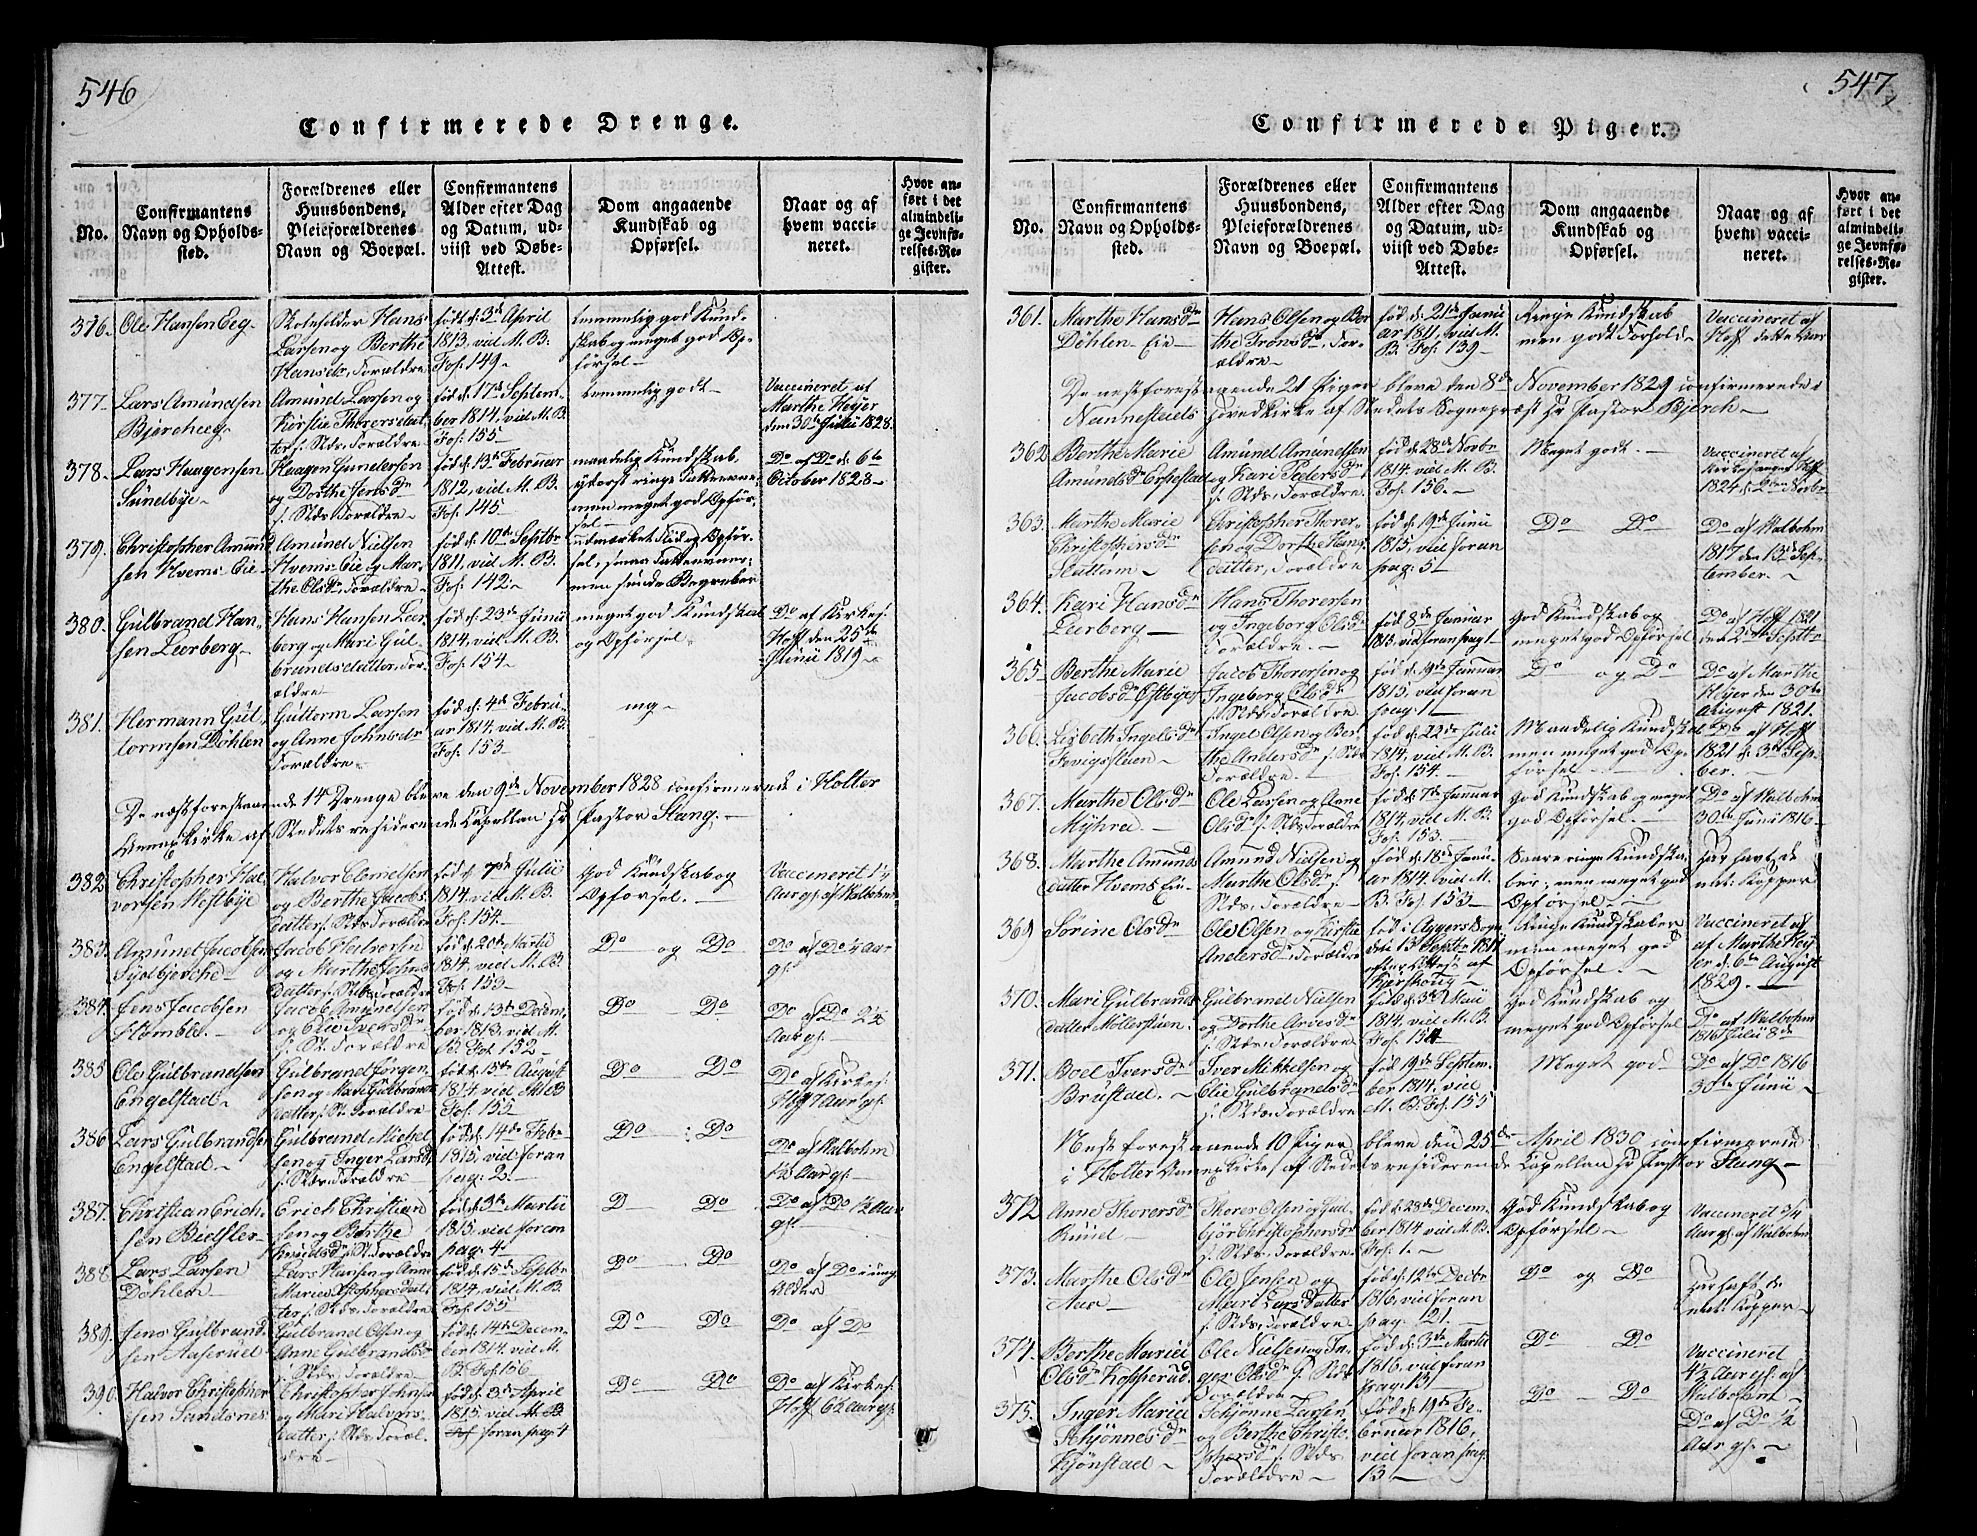 546
Confirmerede Drenge.
No.
Confirmantens
Navn og Opholds-
sted.
Forældrenes eller
Huusbondens,
Pleieforældrenes
Navn og Boepæl.
Confirmantens
Alder efter Dag
og Datum, ud-
viist ved Døbe-
Attest.
Dom angaaende
Kundskab og
Opførsel.
Naar og af
hvem vacci-
neret.
Hvor an-
ført i det
almindeli-
ge Jevnfø-
relses-Re-
gister.
376. Ole Hansen Eeg
Hans
Larsen og Berthe
Hansdr, Forældre
født d: 3de April
1813, viid M. B.
Fol: 149
temmelig god Kund-
skab og meget god Op-
førsel
377. Lars Amundsen
Amund Larsen og
s. Stds. Forældre
fød d: 17de Septem-
ber 1814, vid M. B.
Fol: 155
temmelig godt
Vaccineret af
Marthe Høyer
den 30te Julii 1828
378. Lars Haagensen
Sundbye
Haagen Gundersen
og Dorthe Jensdr
s. Stds. Forældre
fød d: 13de Februar
1812, vid M. B.
Fol: 145
maadelig Kundskab,
yderst ringe Fatteevne
men meget god Opfør-
sel
Do af Do d: 6te
October 1828
379. Christopher Amund
sen Hvems Eie
Amund Nielsen
Hvems Eie og Mar-
the Olsdr, Forældre
fød d: 10de Septbr
1811, vid M. B.
Fol: 142
udmærket Flid og Opfør-
sel,
380. Gulbrand Han-
sen Leerberg
Hans Hansen Leer-
berg og Mari Gul-
brandsdatter, For-
ældre
fød d: 23de Junii
1814, vid M. B.
Fol: 154
meget god Kundskab
og Opførsel
Do af Kirkes:
Hoff den 25de
Junii 1819
381. Hermann Gut-
tormsen Døhlen
Guttorm Larsen
og Anne Johnsdr
Forældre
fød d: 4de Februar
ar 1814, vid M. B.
Fol: 153
mg
De næstforestaaende 14 Drenge bleve den 9de November 1828 confirmerede i Holter
Annex Kirke af Stedets residerende Capellan Hr Pastor Stang.
382. Christopher Hal-
vorsen Høftbye
Halvor Clemetsen
og Berthe Jacobs
datter s. Stds. Forældre
fød d: 7de Julii
1814, vid M. B.
Fol: 154
God Kundskab og
Opførsel.
Vaccineret 1/4
Aar gl: af Malbohm
383. Amund Jacobsen
Jacob Halvorsen
og Marthe Johns
datter s. Stds. Forældre
fød d: 20de Martii
1814, vid M. B.
Fol: 153
Do og Do
384. Jens Jacobsen
Stomble
Jacob Amundsen
og Elie Iversdr
s. St. Forældre
fød d: 13de Decem-
ber 1813, vid M.
B. Fol. 152
Do Do
385. Ole Gulbrandsen
Engelstad
Gulbrand Jørgen
sen og Mari Gulbrands
datter s. St. Forældre
fød d: 15de August
1814 vid M. B
Fol: 155
Do Do
386. Lars Gulbrandsen
Engelstad
Gulbrand Michel
sen og Inger Larsdr
s. Stds. Forældre
fød d: 14de Febr
1815, vid foran
pag: 2.
Do Do
Do af Malbohm
1½ Aar gl:
387. Christian Erich-
sen Bidsler
Erich Christian
sen og Berthe
Knudsdr s. St. Forældre
fød d: 3de Martii
1815, vid foran
pag: 4
D Do
388. Lars Larsen
Døhlen
Lars Hansen og Anne
fød d: 15de Septbr
1814, vid M. B.
Fol: 155
Do Do
389. Jens Gulbrand-
sen Aaserud
Gulbrand Olsen og
Anne Gulbrandsdr
s. Stds. Forældre
fød d: 14de Decem-
ber 1814, vid M.
B. Fol 156
Do Do
Do af Do
390. Halvor Christopher
sen Sandsnes
Christopher Johnsen
og Mari Halvors-
datter s. Stds. Foræl-
dre
fød d: 3de April
1815, vid M. B
foran pag: 4
Do Do
Do af Kirkes:
547
Confirmerede Piger.
No.
Confirmantens
Navn og Opholds-
sted.
Forældrenes eller
Huusbondens,
Pleieforældrenes
Navn og Boepæl.
Confirmantens
Alder efter Dag
og Datum, ud-
viist ved Døbe-
Attest.
Dom angaaende
Kundskab og
Opførsel.
Naar og af
hvem vacci-
neret.
Hvor an-
ført i det
almindeli-
ge Jevnfø-
relses-Re-
gister.
361. Marthe Hansdr
Døhlen Eie
Hans Olsen og Ber
the Tronsdr, For-
ældre
fød d: 21de Janu
ar 1811, vid M.
B. Fol: 139
Ringe Kundskab
men godt Forhold
Vaccineret af
Hoff dette Aar
De nestforestaaende 21 Piger bleve den 8de November 1829 confirmerede i
Nannestads Hovedkirke af Stedets Sognepræst Hr Pastor Bjerch
362. Berthe Marie
Amund Amundsen
og Kari Pedersdr
s. Stds. Forældre
fød d: 28de Novbr
1814, vid M. B.
Fol: 156.
Meget godt.
Vaccineret af
Kirkesanger Hoff
1824 d: 2den Novbr
363. Marthe Marie
Christophersdr
Slattum
Christopher Thorer-
sen og Dorthe Hans
datter, Forældre
fød d: 19de Junii
1815, vid foran
pag: 5
Do Do
Do af Malbohm
1817 den 13de Sep-
tember.
364. Kari Hansdr
Leerberg
Hans Thorersen
og Ingeborg Olsdr
Forældre.
fød 8de Januar
1813, vid foran pag 1
God Kundskab og
meget god Opførsel
Do af Hoff 1821
den 2den Septbr
365. Berthe Marie
Jacobsdr Østbye
Jacob Thorersen og
Ingeborg Olsdr
s. Stds. Forældre
fød d: 9de Januar
1815, vid foran
pag: 1
Do og Do
Do af Marthe
Høyer den 30te
August 1821.
366. Lisbeth Ingelsdr
Ingel Olsen og Ber-
the Andersdr s. Stds
Forældre
fød d: 22de Julii
1814, vid M. B.
Fol: 154.
Maadelig Kundskab
men meget god Op-
førsel
Do af Hoff
1821 d: 3de Sep-
ber.
367. Marthe Olsdr
Myhra
Ole Larsen og Anne
Olsdr s. Stds. Forældre
fød d: 7de Januar
1814, vid M. B.
Fol: 153.
God Kundskab og meget
god Opførsel.
Do af Malbohm
30te Juni 1816
368. Marthe Amunds
datter Hvems Eie
Amund Nielsen og
Marthe Olsdr s.
Stds. Forældre
fød d: 18de Janu-
ar 1814. vid M.
B. Fol: 153
Saare ringe Kundska-
ber, men meget god
Opførsel.
Har havt de
nat: Kopper
369. Sørine Olsdr
Ole Olsen og Kirstie
Andersdr, Forældre
fød i Aggers Sogn
den 13 Septbr 1814
efter Attest af
Ringe Kundskaber
men meget god
Opførsel.
Vaccineret af
af Marthe Høy-
er d: 6te August
1829.
370. Mari Gulbrands
datter Møllerstuen.
Gulbrand Nielsen
og Dorthe Arvesdr
s. Stds. Forældre
fød d: 3de Maii
1814. vid M. B.
Fol: 154
God Kundskab og
meget god Opførsel
Do af Malbohm
1816 Julii 8de
371. Boel Iversdr
Brustad.
Iver Mikkelsen og
Elie Gulbrandsdr
s. Stds. Forældre
fød 19de Septem-
ber 1814. vid
M. B. Fol: 155
Meget god
Do af Do 1816
30te Junii
Nest forestaaende 10 Piger bleve den 25de April 1830 confirmerede
i Holter Annexkirke af Stedets residerende Capellan Hr Pastor Stang
372. Anne Thorersdr
Thorer Olsen og Gul
bjør Christophersdr
s. Stds. Forældre
fød d: 28de Decem-
ber 1814 vid M. B.
Fol: 1.
God Kundskab og
Opførsel
Vaccineret 3/4
Aar gl: af Malbohm
373. Marthe Olsdr
Aas
Ole Jensen og
Mari Larsdatter
s. Stds. Forældre
fød d: 12te Decbr
1816, vid foran
pag: 21.
Do og Do
Har haft de
nat: Kopper
374. Berthe Marie
Olsdr Kopperud
Ole Nielsen og In-
ger Olsdr s. Stds
Forældre
fød d: 3de Martii
1816, vid foran
pag: 13
Do Do
Vaccineret
4½ Aar gl: af
Malbohm
375. Inger Marie
Schjønnesdr
Schjønne Larsen
og Berthe Christo-
phersdr s. Stds
Forældre
fød d: 19de Fe-
bruar 1816,
vid foran pag:
13
Do Do
Do af Do ½
Aar gl: